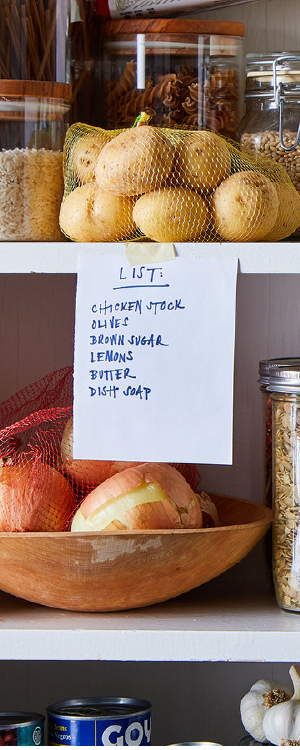 LIST:
CHICKEN STOCK
OLIVES
BROWN SUGAR
LEMONS
BUTTER
DISH SOAP
GOY